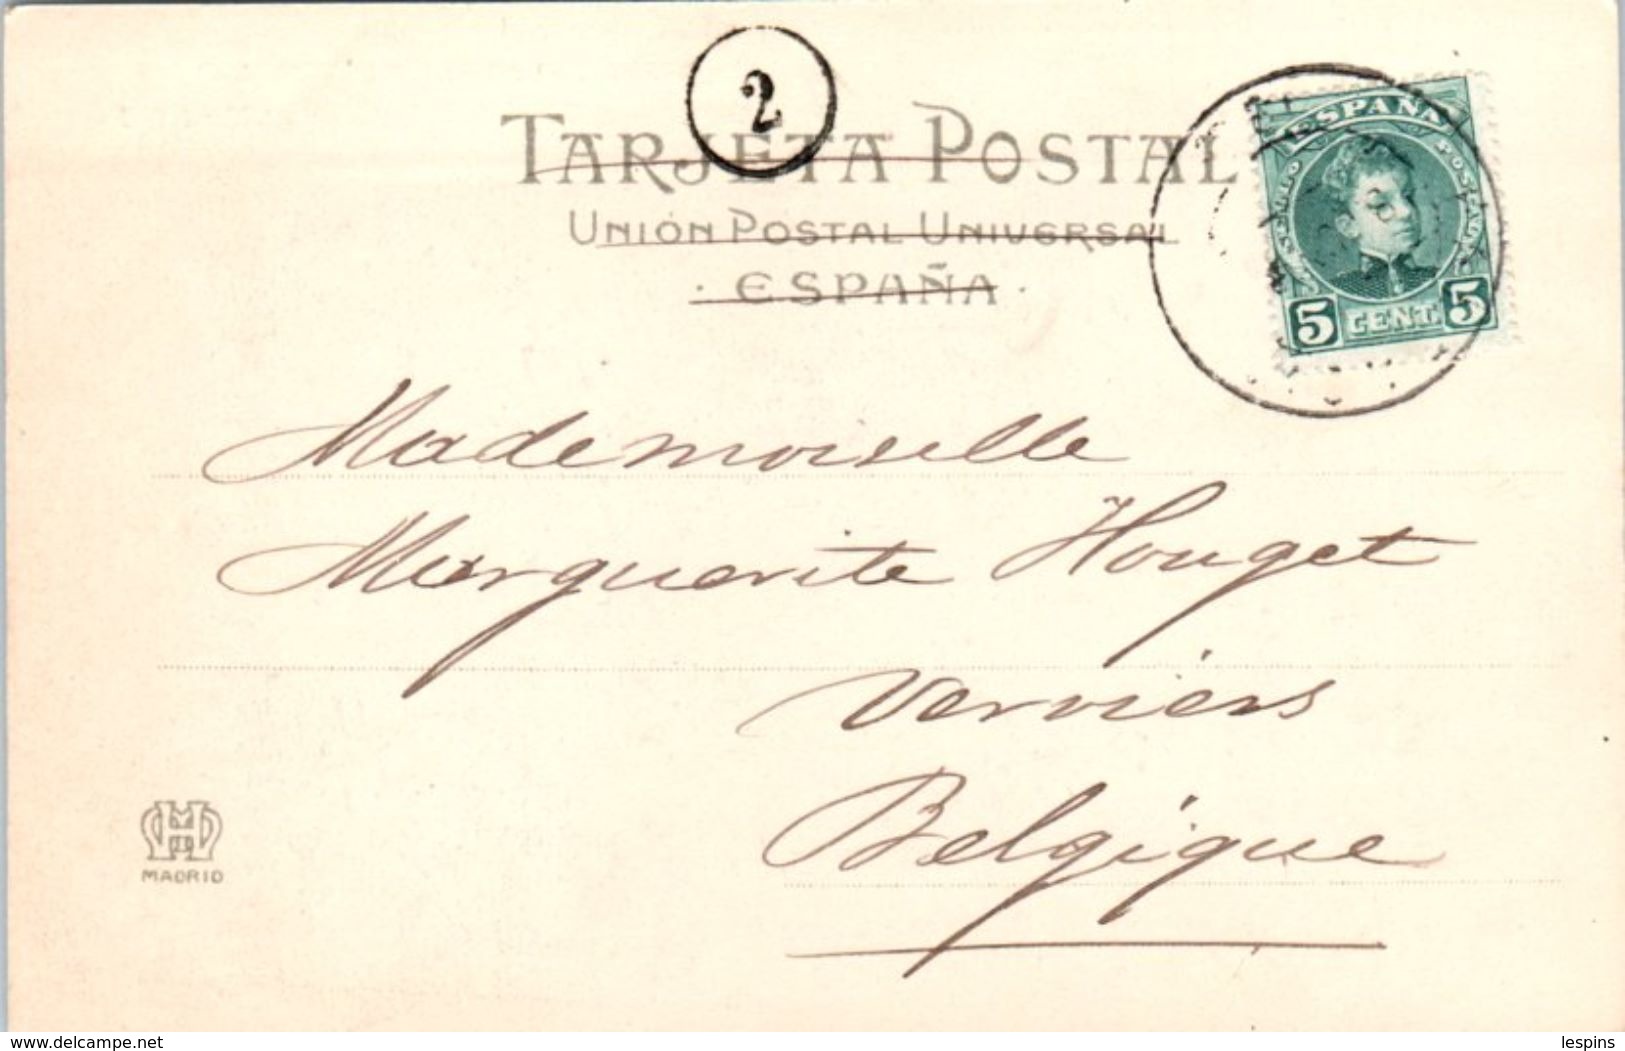 2
TARJETA POSTAL
UNIÓN POSTAL UNIVERSAL
· ESPAÑA ·
ESPAÑA
5 CENT. 5
Mademoiselle
Marguerite Houget
Verviers
Belgique
MADRID
www.delcampe.net
lespins